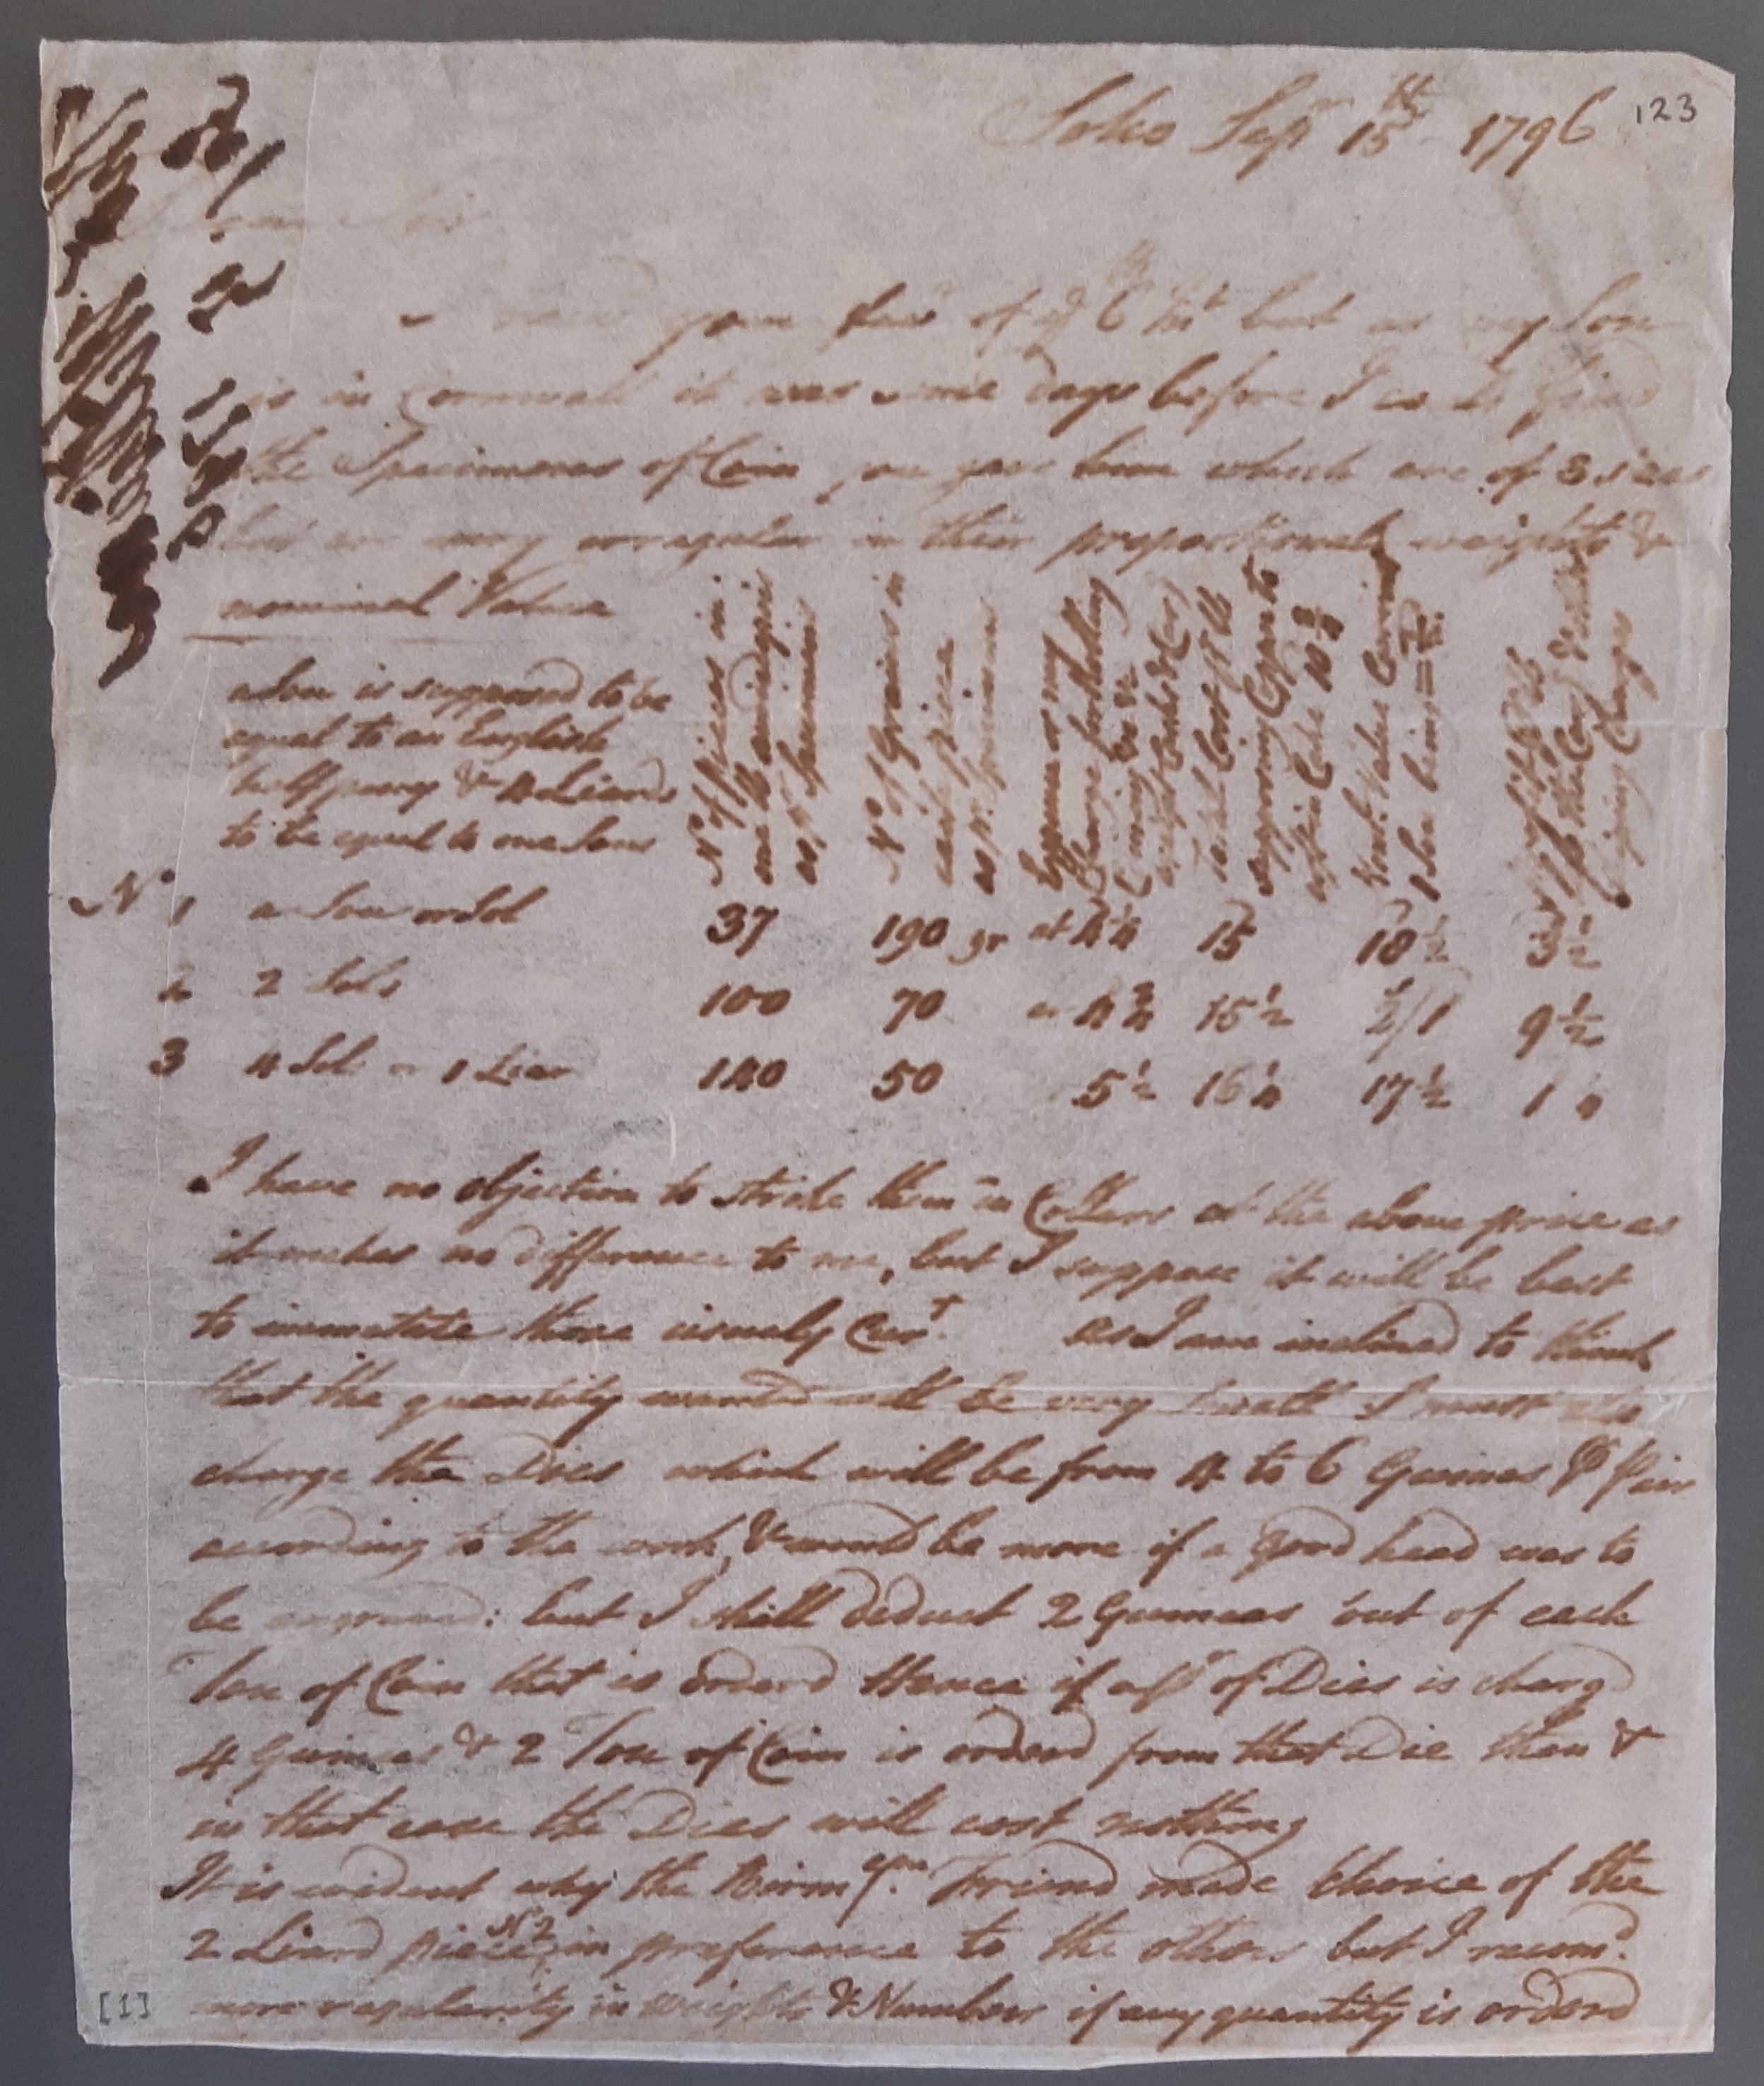 123
Soho Sepr 15th 1796
Sir
your favr of ye 6th inst but as my Son
is in Cornwall it was some days before I co'd find
the Specimens of Coin you gave him which are of 3 sizes
but are very irregular in their proportional weights &
nominal Value
a Sou is supposed to be
equal to an English
halfpenny & 4 Liards
to be equal to one Sou
No of Pieces in
one lb avoirdupois
as pr Specimen
No of Grains in
each piece
as pr Specimen
Expence or my
Charge including
Coining
total Cost pr lb
supposing Copper to
10 3/4
Nom.l Value Coming
1 Sou being = 1/2
Charges
No 1 a Sou or Sol 37 190 gr at 4 1/4 15 18 1/2 3 1/2
2 2 Sols 100 70 4 3/4 15 1/2 2/1 9 1/2
3 4 Sol or 1 Liar 140 50 5 1/2 16 1/4 17 1/2 1 1/4
I have no objection to strike them in Collers at the above price as
it makes no difference to me, but I suppose it will be best
to immitate those usualy Curt. as I am inclined to think
that the quantity wanted will be very small I must also
charge the Dies which will be from 4 to 6 Guineas pr Pair
according to the work, & would be more if a good head was to
be engraved: but I shall deduct 2 Guineas out of each
Ton of Coin that is orderd Hence if a pr of Dies is chargd
4 Guineas & 2 Ton of Coin is orderd from that Die then &
in that case the Dies will cost nothing
It is evident why the Birmgm. Friend made Choice of the
2 Liard piece No 2, in preference to the others but I recomd.
more regularity in Weights & Numbers if any quantity is orderd
[1]